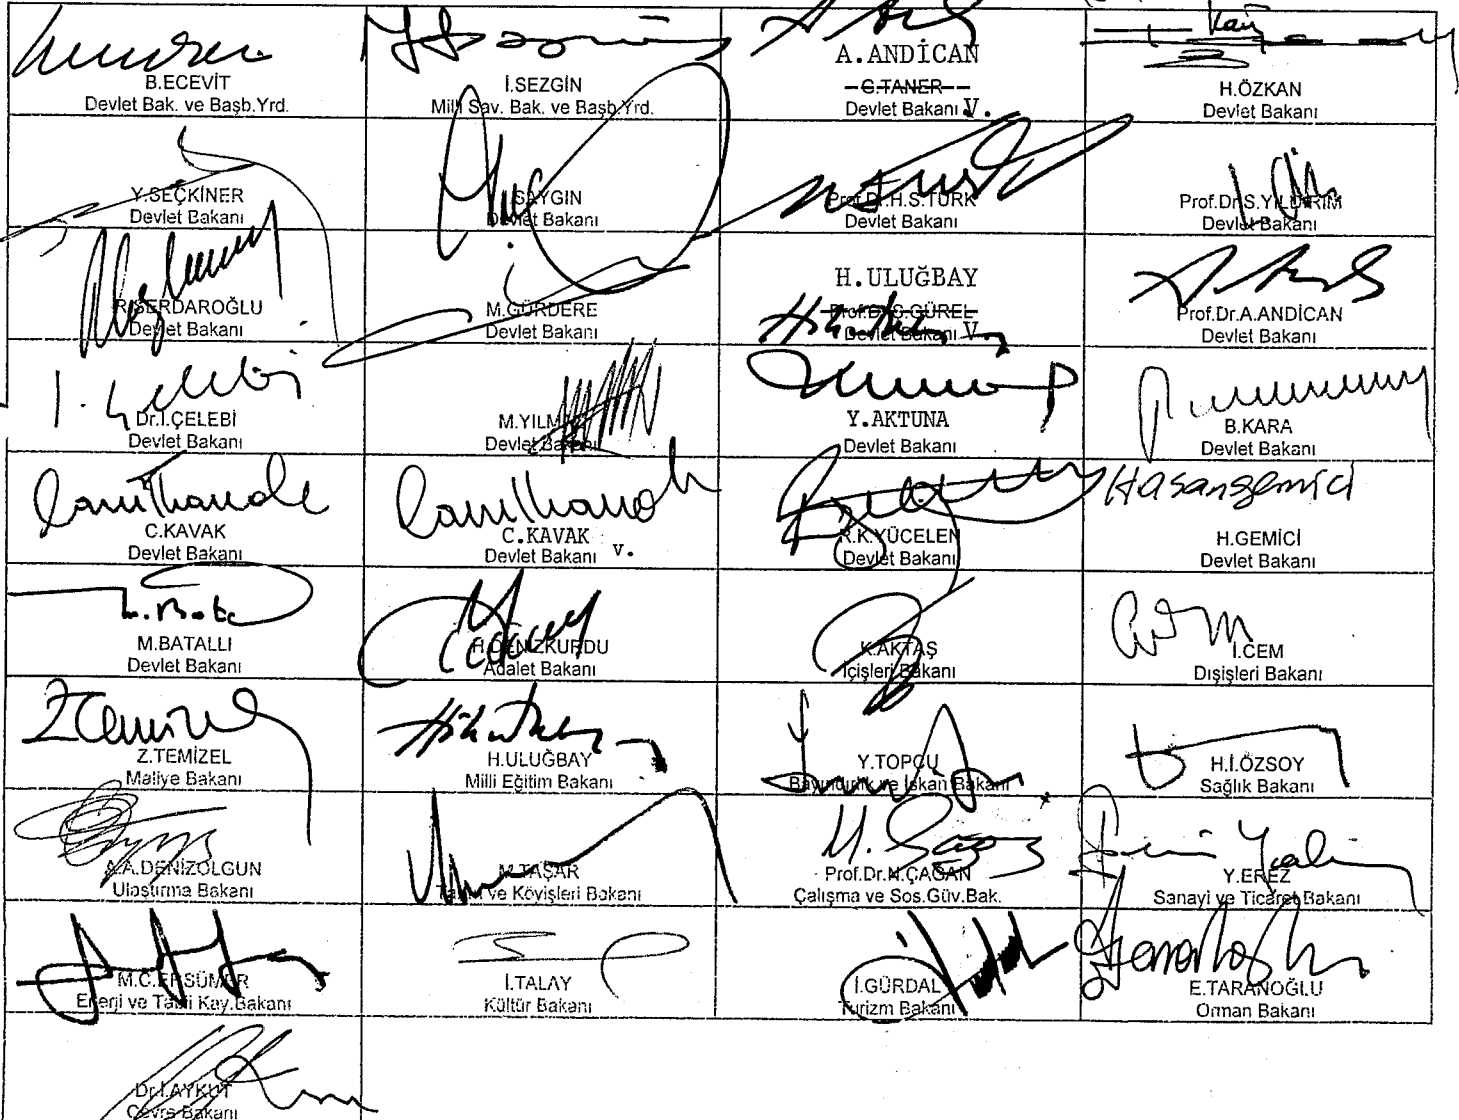 B.ECEVİT
Devlet Bak. ve Başb.Yrd.
İ.SEZGİN
Milli Sav. Bak. ve Başb.Yrd.
A.ANDİCAN
G.TANER
Devlet Bakanı V.
H.ÖZKAN
Devlet Bakanı
Y.SEÇKİNER
Devlet Bakanı
I.SAYGIN
Devlet Bakanı
Prof.Dr.H.S.TÜRK
Devlet Bakanı
Prof.Dr.S.YILDIRIM
Devlet Bakanı
R.SERDAROĞLU
Devlet Bakanı
M.GÜRDERE
Devlet Bakanı
H.ULUĞBAY
Prof.Dr.Ş.GÜREL
Devlet Bakanı V.
Prof.Dr.A.ANDİCAN
Devlet Bakanı
I. Çelebi
Dr.I.ÇELEBİ
Devlet Bakanı
M.YILMAZ
Devlet Bakanı
Y.AKTUNA
Devlet Bakanı
B.KARA
Devlet Bakanı
C.KAVAK
Devlet Bakanı
C.KAVAK
Devlet Bakanı V.
R.K.YÜCELEN
Devlet Bakanı
Hasangemici
H.GEMİCİ
Devlet Bakanı
M.BATALLI
Devlet Bakanı
H.DENİZKURDU
Adalet Bakanı
K.AKTAŞ
İçişleri Bakanı
İ.CEM
Dışişleri Bakanı
ZTemizel
Z.TEMİZEL
Maliye Bakanı
H.ULUĞBAY
Milli Eğitim Bakanı
Y.TOPÇU
Bayındırlık ve İskan Bakanı
H.İ.ÖZSOY
Sağlık Bakanı
A.A.DENİZOLGUN
Ulaştırma Bakanı
M.TAŞAR
Tarım ve Köyişleri Bakanı
Prof.Dr.N.ÇAĞAN
Çalışma ve Sos.Güv.Bak.
Y.EREZ
Sanayi ve Ticaret Bakanı
M.C.ERSÜMER
Enerji ve Tabii Kay.Bakanı
İ.TALAY
Kültür Bakanı
İ.GÜRDAL
Turizm Bakanı
E.TARANOĞLU
Orman Bakanı
Dr.İ.AYKUT
Çevre Bakanı